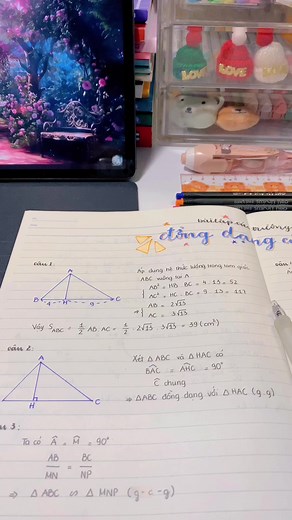 LOVE
LOVE
bài tập
đồng dạng
câu 1:
A
B 4 H 9 C
Áp dụng hệ thức lượng trong tam giác
ABC vuông tại A
AB² = HB . BC = 4 . 13 = 52
AC² = HC . BC = 9 . 13 = 117
AB = 2√13
⇒ AC = 3√13
Vậy S ABC = 1/2 AB . AC = 1/2 . 2√13 . 3√13 = 39 (cm²)
câu 2:
A
H C
Xét △ABC và △HAC có
BAC = AHC = 90°
C chung
⇒ △ABC đồng dạng với △HAC (g.g)
3:
Ta có A = M = 90°
AB/MN = BC/NP
⇒ △ABC ∽ △MNP (g-c-g)